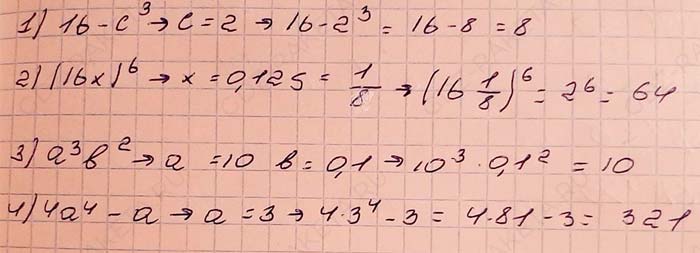 1) 16 - c³ → c = 2 → 16 - 2³ = 16 - 8 = 8
2) (16x)⁶ → x = 0,125 = 1/8 → (16 1/8)⁶ = 2⁶ = 64
3) a³b² → a = 10 b = 0,1 → 10³ · 0,1² = 10
4) 4a⁴ - a → a = 3 → 4·3⁴ - 3 = 4·81 - 3 = 321